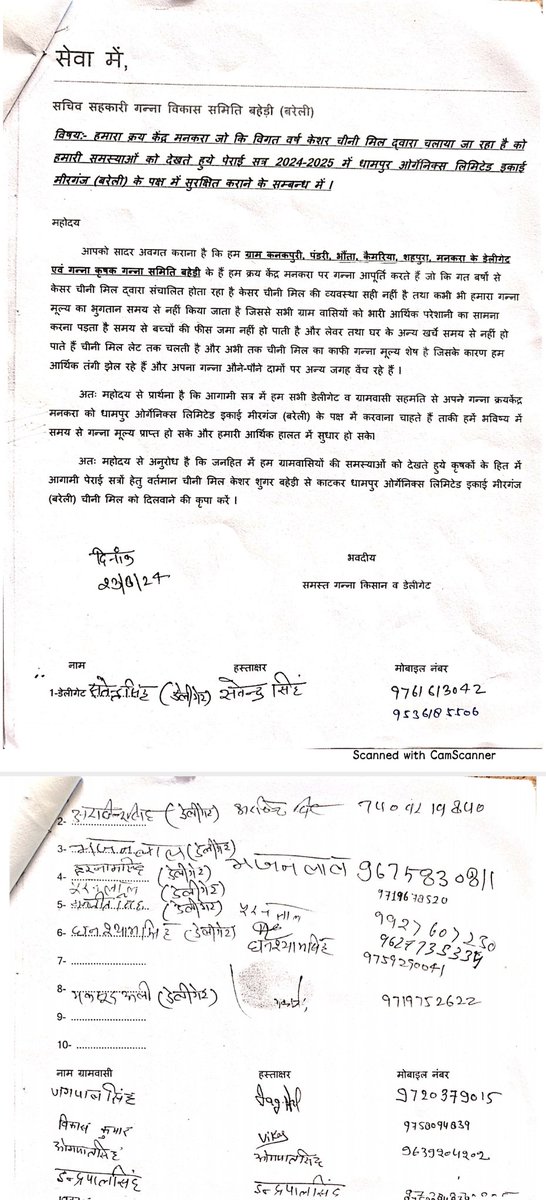 सेवा में,
सचिव सहकारी गन्ना विकास समिति बहेड़ी (बरेली)
विषय:- हमारा क्रय केंद्र मनकरा जो कि विगत वर्ष केशर चीनी मिल द्वारा चलाया जा रहा है को
हमारी समस्याओं को देखते हुये पेराई सत्र 2024-2025 में धामपुर ओर्गेनिक्स लिमिटेड इकाई
मीरगंज (बरेली) के पक्ष में सुरक्षित कराने के सम्बन्ध में ।
महोदय
आपको सादर अवगत कराना है कि हम ग्राम कनकपुरी, पंडरी, भौंता, कैमरिया, शहपुरा, मनकरा के डेलीगेट
एवं गन्ना कृषक गन्ना समिति बहेड़ी के हैं हम क्रय केंद्र मनकरा पर गन्ना आपूर्ति करते हैं जो कि गत बर्षा से
केसर चीनी मिल द्वारा संचालित होता रहा है केसर चीनी मिल की व्यवस्था सही नहीं है तथा कभी भी हमारा गन्ना
मूल्य का भुगतान समय से नहीं किया जाता है जिससे सभी ग्राम वासियों को भारी आर्थिक परेशानी का सामना
करना पड़ता है समय से बच्चों की फीस जमा नहीं हो पाती है और लेवर तथा घर के अन्य खर्चे समय से नहीं हो
पाते हैं चीनी मिल लेट तक चलती है और अभी तक चीनी मिल का काफी गन्ना मूल्य शेष है जिसके कारण हम
आर्थिक तंगी झेल रहे हैं और अपना गन्ना औने-पौने दामों पर अन्य जगह वेंच रहे हैं ।
अतः महोदय से प्रार्थना है कि आगामी सत्र में हम सभी डेलीगेट व ग्रामवासी सहमति से अपने गन्ना क्रयकेंद्र
मनकरा को धामपुर ओर्गेनिक्स लिमिटेड इकाई मीरगंज (बरेली) के पक्ष में करवाना चाहते हैं ताकी हमें भविष्य में
समय से गन्ना मूल्य प्राप्त हो सके और हमारी आर्थिक हालत में सुधार हो सके।
अतः महोदय से अनुरोध है कि जनहित में हम ग्रामवासियों की समस्याओं को देखते हुये कृषकों के हित में
आगामी पेराई सत्रों हेतु वर्तमान चीनी मिल केशर शुगर बहेड़ी से काटकर धामपुर ओर्गेनिक्स लिमिटेड इकाई मीरगंज
(बरेली) चीनी मिल को दिलवाने की कृपा करें ।
दिनांक भवदीय
समस्त गन्ना किसान व डेलीगेट
नाम हस्ताक्षर मोबाइल नंबर
1-डेलीगेट (डेलीगेट) सतेन्द्र सिंह 9761613042
9536185506
Scanned with CamScanner
2- (डेलीगेट) 7409219840
3- भजन लाल (डेलीगेट) भजन लाल 9675830811
4- हरनाम सिंह (डेलीगेट)
(डेलीगेट) 9719678520
5- (डेलीगेट) 9927607230
6- घनश्याम सिंह (डेलीगेट) घनश्याम सिंह 9627735339
7- 9759290041
8- मकसूद अली (डेलीगेट) 9719752622
9-
10-
नाम ग्रामवासी हस्ताक्षर मोबाइल नंबर
जगपाल सिंह 9720379015
विकास कुमार Vikas 9758094839
ओमपाल सिंह ओमपाल सिंह 9639204202
इन्द्रपाल सिंह इन्द्रपाल सिंह